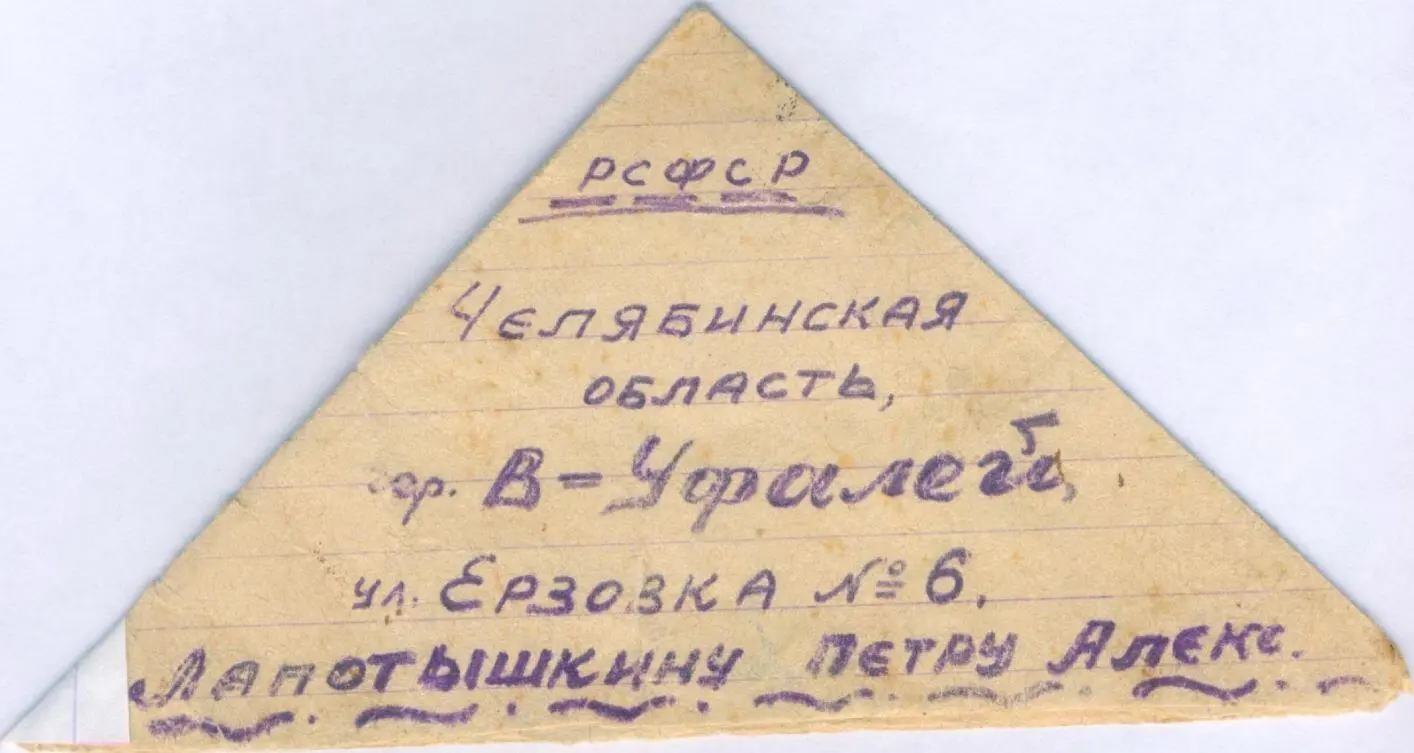 РСФСР
Челябинская
область,
гор. В=Уфалей,
ул. Ерзовка № 6.
Лапотышкину Петру Алекс.